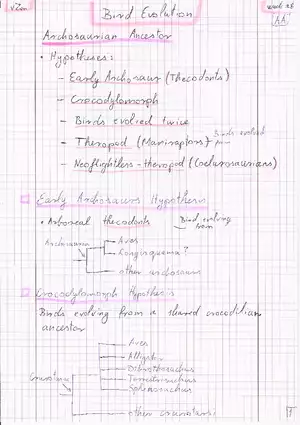 vZoo
Bird Evolution
week 26
AA
Archosaurian Ancestor
• Hypotheses:
– Early Archosaur (Thecodonts)
– Crocodylomorph
– Birds evolved twice
– Theropod (Maniraptors)
Birds evolved
– Neoflightless-theropod (Coelurosaurians)
Early Archosaurs Hypothesis
• Arboreal thecodonts
Bird evolving
from
Archosauria
Aves
Longisquama?
other archosaurs
Crocodylomorph Hypothesis
Birds evolving from a shared crocodilian
ancestor
Aves
Alligator
Terrestrisuchus
Sphenosuchus